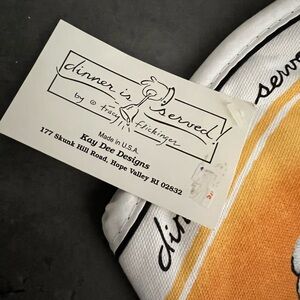 dinner is served!
by © tracy flickinger
Made in U.S.A.
Kay Dee Designs
177 Skunk Hill Road, Hope Valley RI 02832
served
din